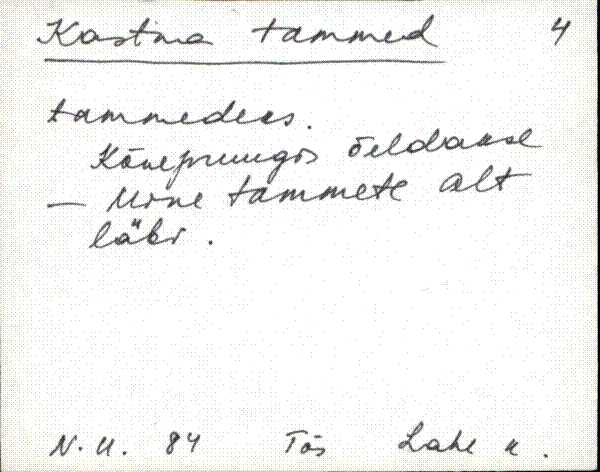 Kastna tammed 4
tammedeks.
Kõnepruugis õeldakse
— Mine tammete alt
läbi.
N.U. 84 Tõs Lahe k.